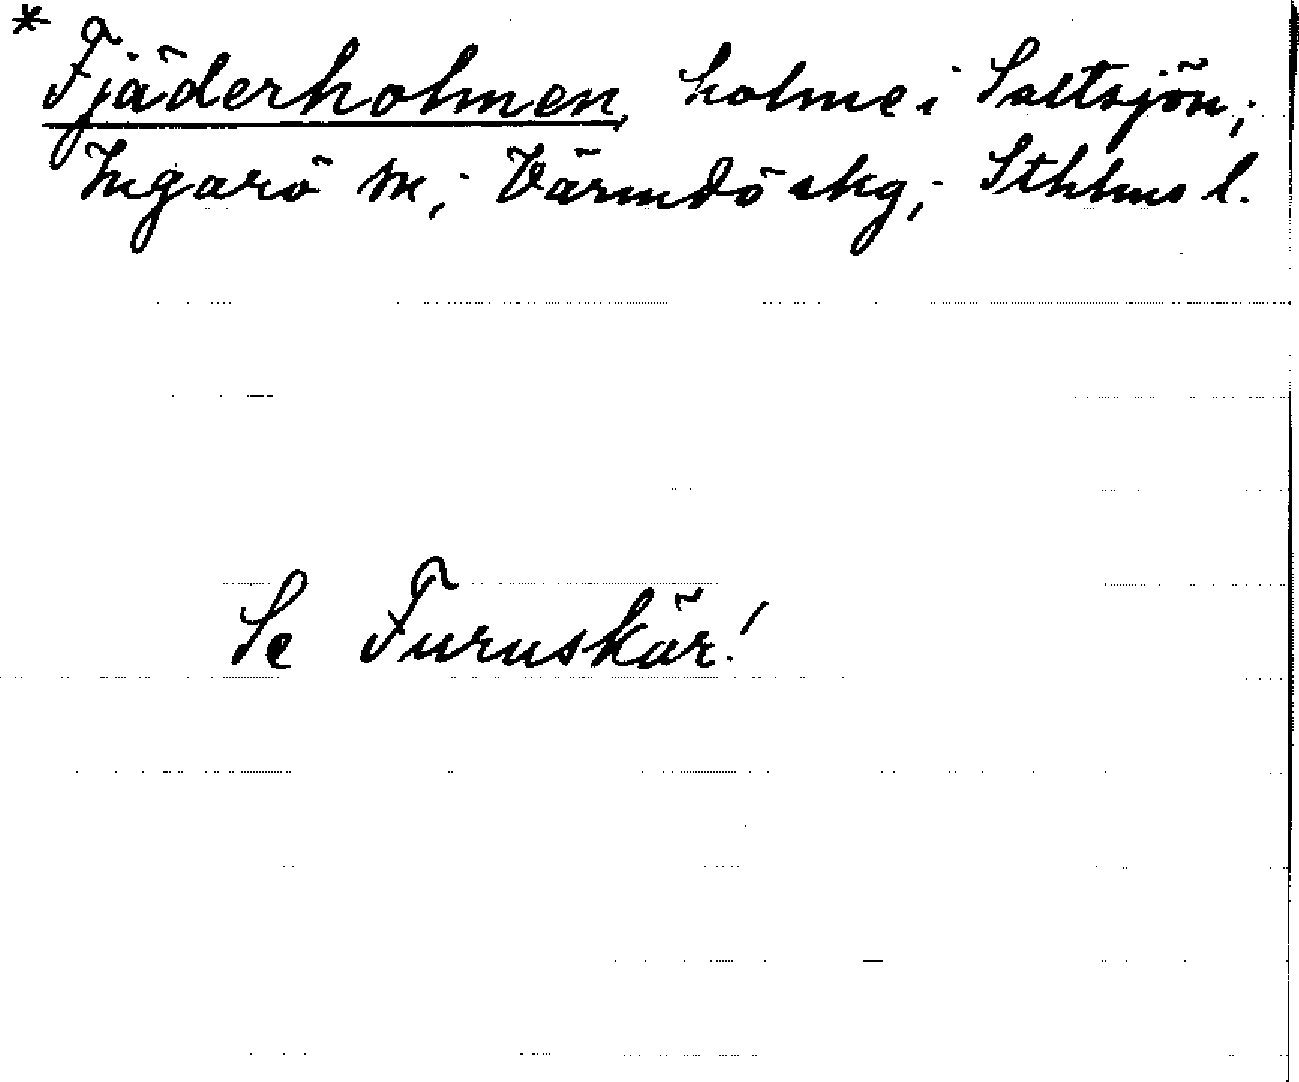 * Fjäderholmen, holme i Saltsjön;
Ingarö sn; Värmdö skg; Sthlms l.
Se Furuskär!